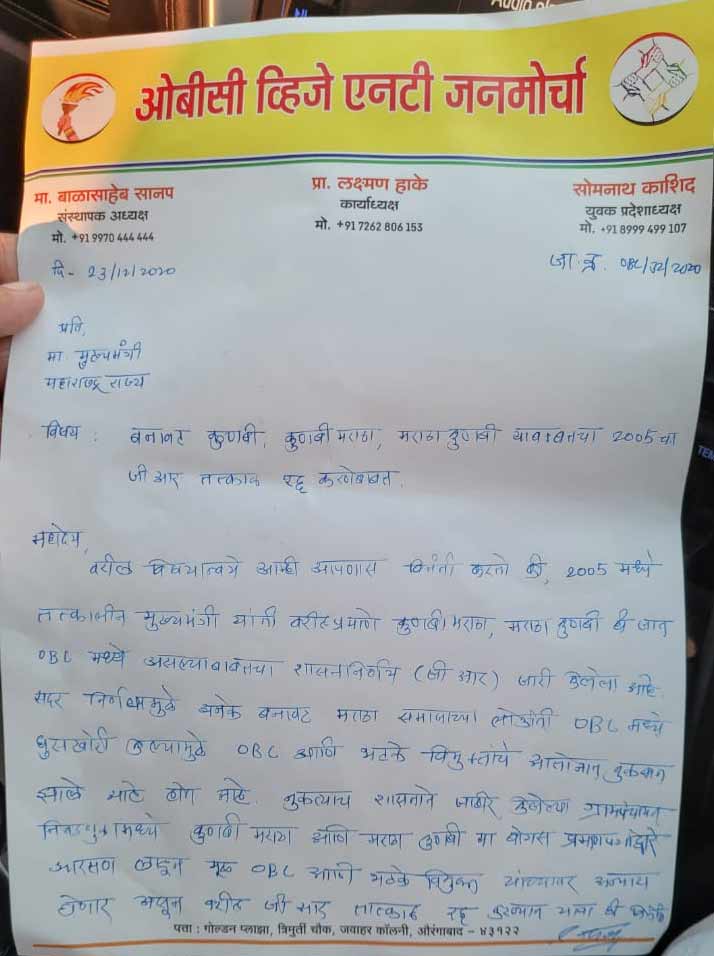 ओबीसी व्हिजे एनटी जनमोर्चा
मा. बाळासाहेब सानप
संस्थापक अध्यक्ष
मो. +91 9970 444 444
प्रा. लक्ष्मण हाके
कार्याध्यक्ष
मो. +91 7262 806 153
सोमनाथ काशिद
युवक प्रदेशाध्यक्ष
मो. +91 8999 499 107
दि - 23/12/2020
जा.क्र. OBC/32/2020
प्रति,
मा. मुख्यमंत्री
महाराष्ट्र राज्य
विषय : बनावट कुणबी, कुणबी मराठा, मराठा कुणबी याबाबतचा 2005 चा
जी आर तत्काळ रद्द करणेबाबत.
महोदय,
वरील विषयान्वये आम्ही आपणास विनंती करतो की, 2005 मध्ये
तत्कालीन मुख्यमंत्री यांनी वरीलप्रमाणे कुणबी मराठा, मराठा कुणबी ही जात
OBC मध्ये असल्याबाबतचा शासननिर्णय (जी आर) जारी केलेला आहे.
सदर निर्णयामुळे अनेक बनावट मराठा समाजाच्या लोकांनी OBC मध्ये
घुसखोरी केल्यामुळे OBC आणि भटके विमुक्तांचे आतोनात नुकसान
झाले आहे होत आहे. नुकत्याच शासनाने जाहीर केलेल्या ग्रामपंचायत
निवडणुकामध्ये कुणबी मराठा आणि मराठा कुणबी या बोगस प्रमाणपत्रांद्वारे
आरक्षण मूळ OBC आणि भटके विमुक्त यांच्यावर अन्याय
होणार असून वरील जी आर तात्काळ रद्द करण्यात यावा ही विनंती
पत्ता : गोल्डन प्लाझा, त्रिमुर्ती चौक, जवाहर कॉलनी, औरंगाबाद - ४३१२२